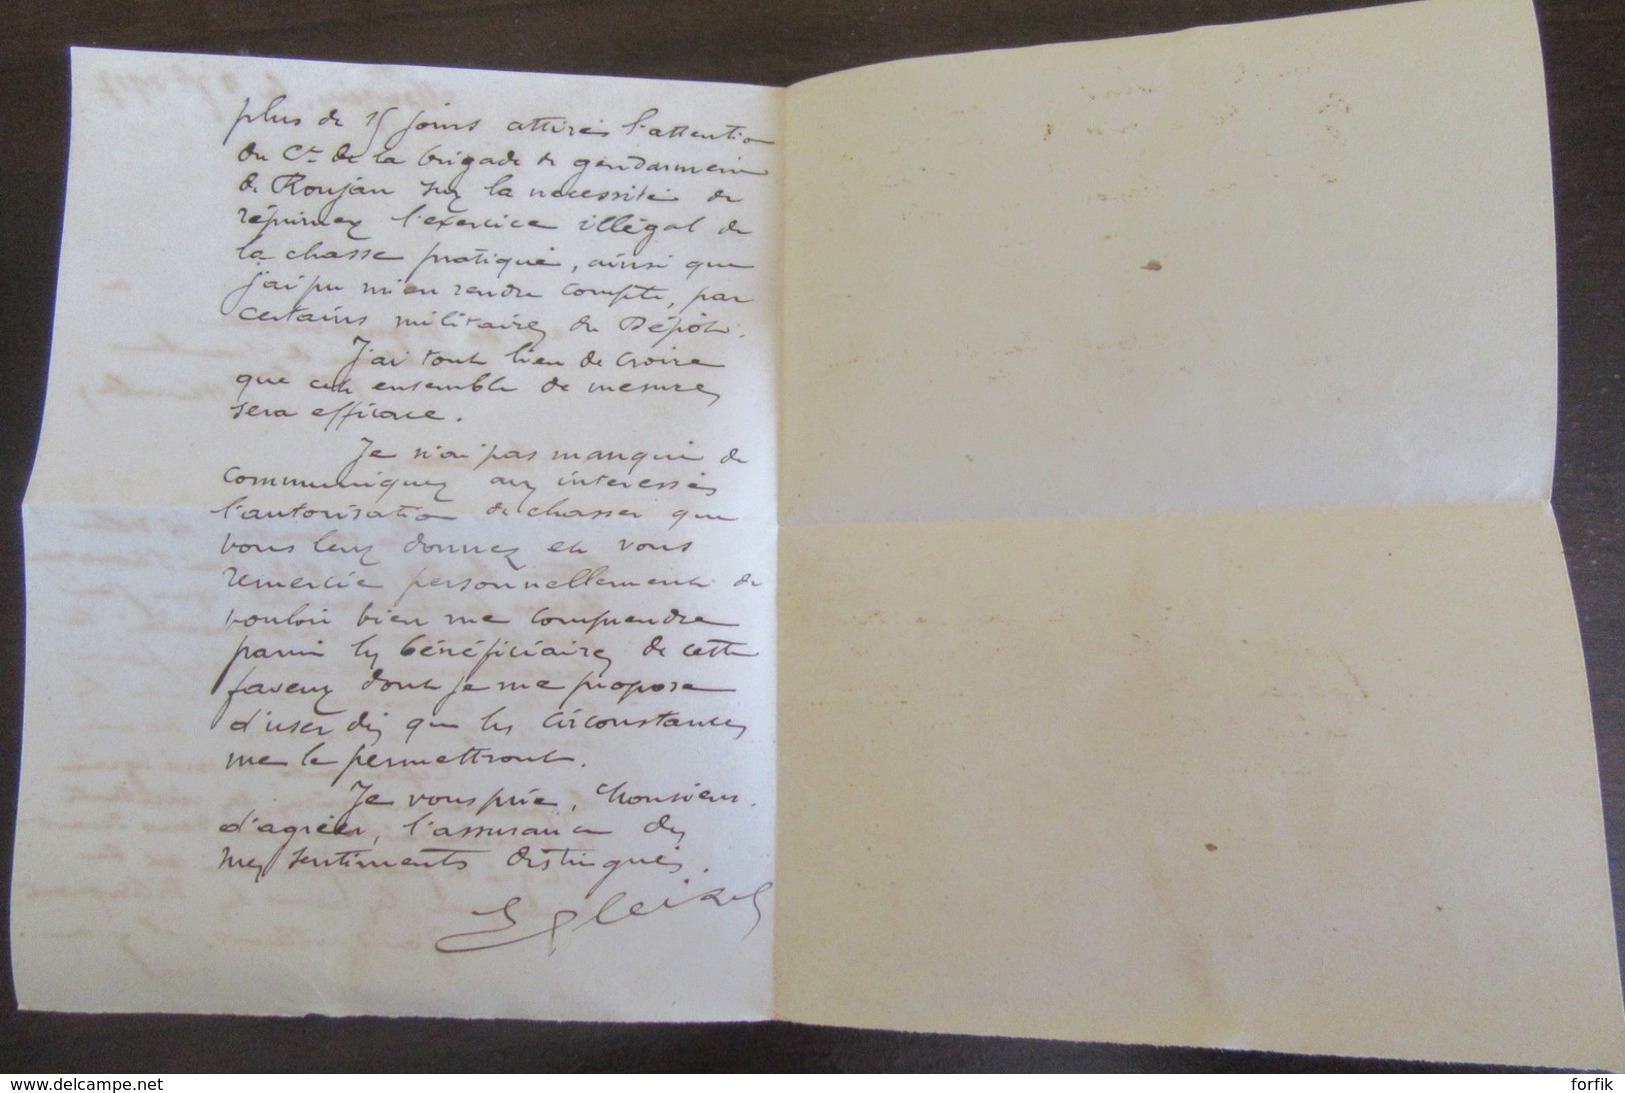 plus de 15 jours attiré l'attention
du Ct de la brigade de gendarmerie
de Roujan sur la nécessité de
réprimer l'exercice illégal de
la chasse pratiqué, ainsi que
j'ai pu m'en rendre compte, par
certains militaires du Dépôt.
J'ai tout lieu de croire
que cet ensemble de mesures
sera efficace.
Je n'ai pas manqué de
communiquer aux intéressés
l'autorisation de chasser que
vous leur donnez et vous
remercie personnellement de
vouloir bien me comprendre
parmi les bénéficiaires de cette
faveur dont je me propose
d'user dès que les circonstances
me le permettront.
Je vous prie, Monsieur,
d'agréer, l'assurance de
mes sentiments distingués.
www.delcampe.net
forfik